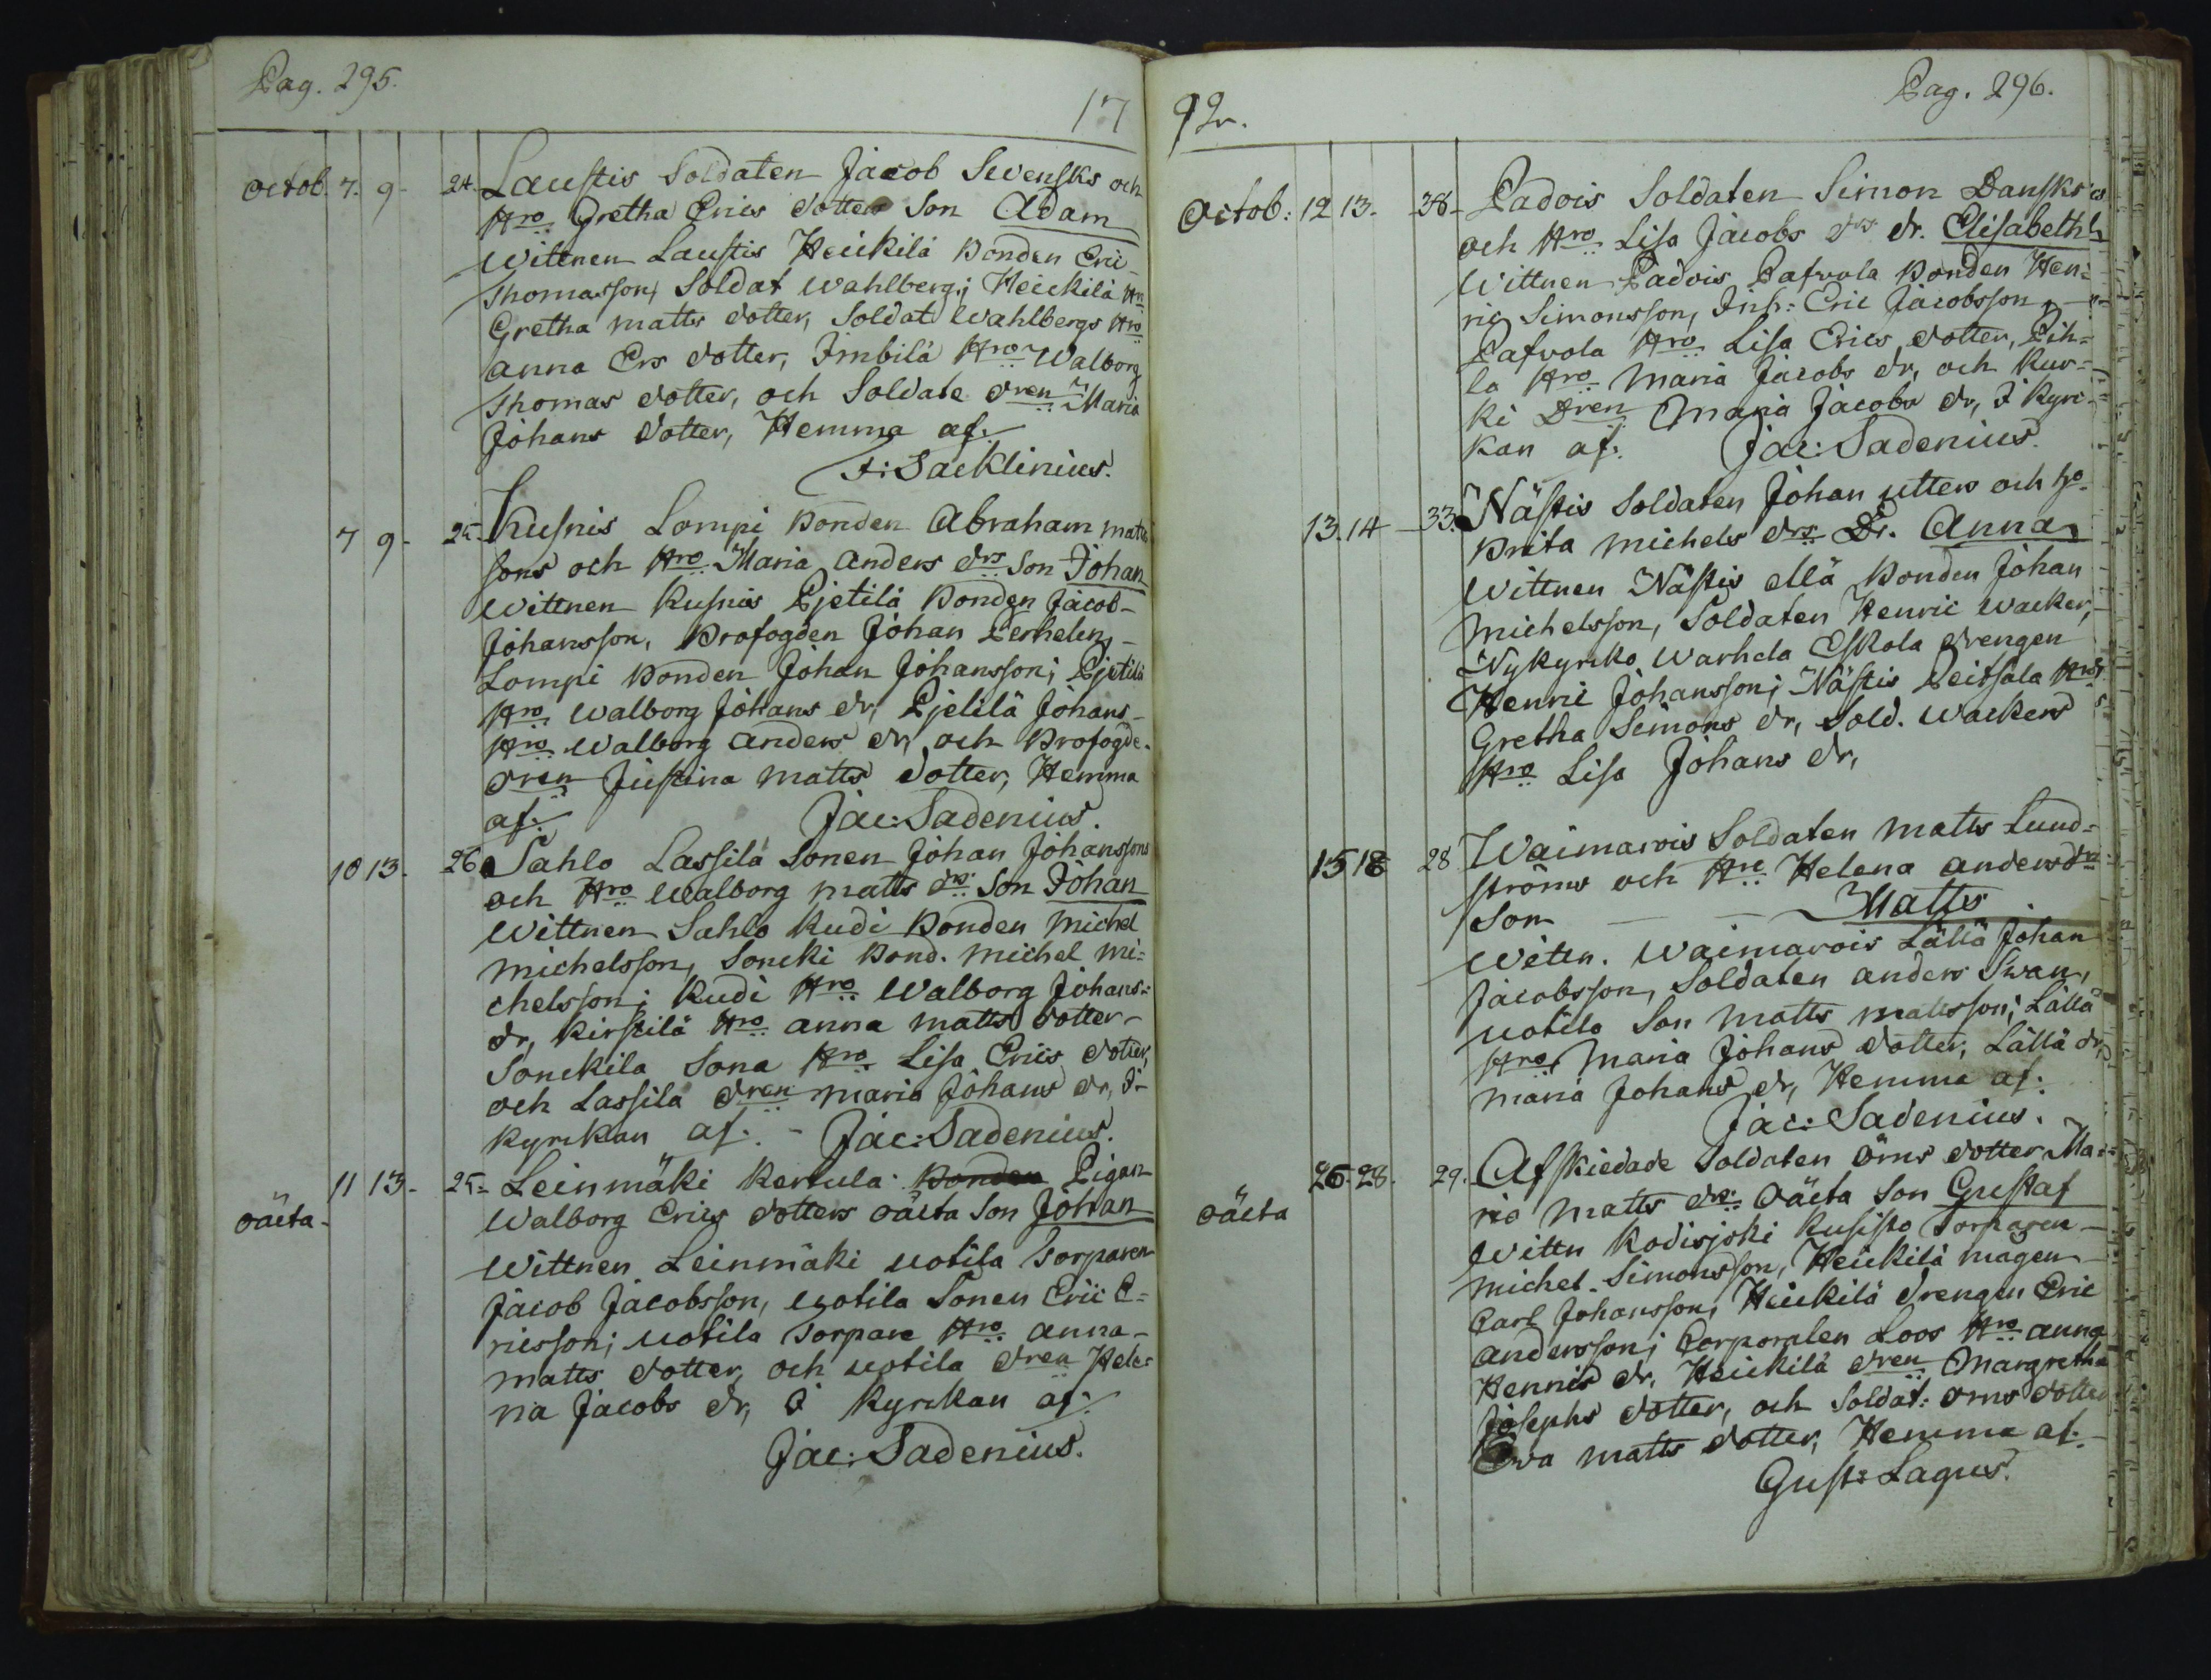 Pag. 295.
17
Octob. 7. 9. 24. Laustis Soldaten Jacob Swensks och
Hro Gretha Erics dotters Son Adam
Wittnen Laustis Heickilä Bonden Eric
Thomasson, Soldat Wahlberg; Heickilä Hro
Gretha Matts dotter, Soldat Wahlbergs Hro
Anna Ers dotter,Imbilä Hro Walborg
Thomas dotter, och Soldate dren Maria
Johans dotter, Hemma af.
F: Sacklinius.
7 9. 25. Kusnis Lompi Bonden Abraham Mats
sons och Hro Maria Anders drs Son Johan
Wittnen Kusnis Pjetilä Bonden Jacob
Johansson, Profogden Johan Perhelin,
Lompi Bonden Johan Johansson; Pjetilä
Hro Walborg Johans dr, Pjelilä Johans
Hro Walborg Anders dr, och Profogde
dren Justina Matts dotter, Hemma
af. Jac: Sadenius.
10 13. 26. Sahlo Lassila Sonen Johan Johanssons
och Hro Walborg Matts drs Son Johan
Wittnen Sahlo Kudi Bonden Michel
Michelsson, Soncki Bond. Michel Mi=
chelsson; Kudi Hro Walborg Johans=
dr, Kirstilä Hro Anna Matts dotter
Sonckila Sona Hro Lisa Erics dotter,
och Lassila dren Maria Johans dr, I
Kyrckan af. - Jac: Sadenius.
11 13. 25. Leinmäki Kertula Bonden Pigan
oäcta Walborg Erics dotters oäcta Son Johan
Wittnen Leinmäki Uotila Torparen
Jacob Jacobsson, Uotila Sonen Eric E=
ricsson; Uotila Torpare Hro Anna
Matts dotter, och Uotila dren Hele=
na Jacobs dr, I Kyrckan af.
Jac: Sadenius.
92.
Pag. 296.
Octob: 12 13. 38. Padois Soldaten Simon Dansks
och Hro Lisa Jacobs drs dr. Elisabeth
Wittnen Padois Pafvola Bonden Hen=
ric Simonsson, Inh: Eric Jacobsson,
Pafvola Hro Lisa Erics dotter, Pih=
la Hro Maria Jacobs dr, och Kur=
ki Dren Maria Jacobs dr, I Kyrc
kan af. Jac: Sadenius.
13. 14 33. Nästis Soldaten Johan Utters och Ho
Brita Michels drs Dr. Anna
Wittnen Nästis Ellä Bonden Johan
Michelsson, Soldaten Henric Wacker,
Nykyrcko Warhela Eskola drengen
Henric Johansson; Nästis Peitsala Hro
Gretha Simons dr, Sold. Wackers
Hro Lisa Johans dr,
15 18 28 Waimarois Soldaten Matts Lund=
ströms och Hro Helena Anders drs
Son - - Matts
Wittn. Waimarois Lällä Johan
Jacobsson, Soldaten Anders Swan,
Uotila Son Matts Mattsson; Lällä
Hro Maria Johans dotter, Lällä dr,
Maria Johans dr, Hemma af.
Jac: Sadenius.
26. 28. 29. Afskiedade Soldaten Öms dotter Ma=
oäcta ria Matts drs oäcta Son Gustaf
Wittn Kodisjoki Kusisto Torparen
Michel Simonsson, Heickilä Magen
Carl Johansson, Heickilä drengen Eric
Andersson; Corporalen Loos Hro Anna
Henrics dr. Heickilä dren Margretha
Josephs dotter, och Soldat: Öms dotter
Ewa Matts dotter, Hemma af.
Gust: Lagus.